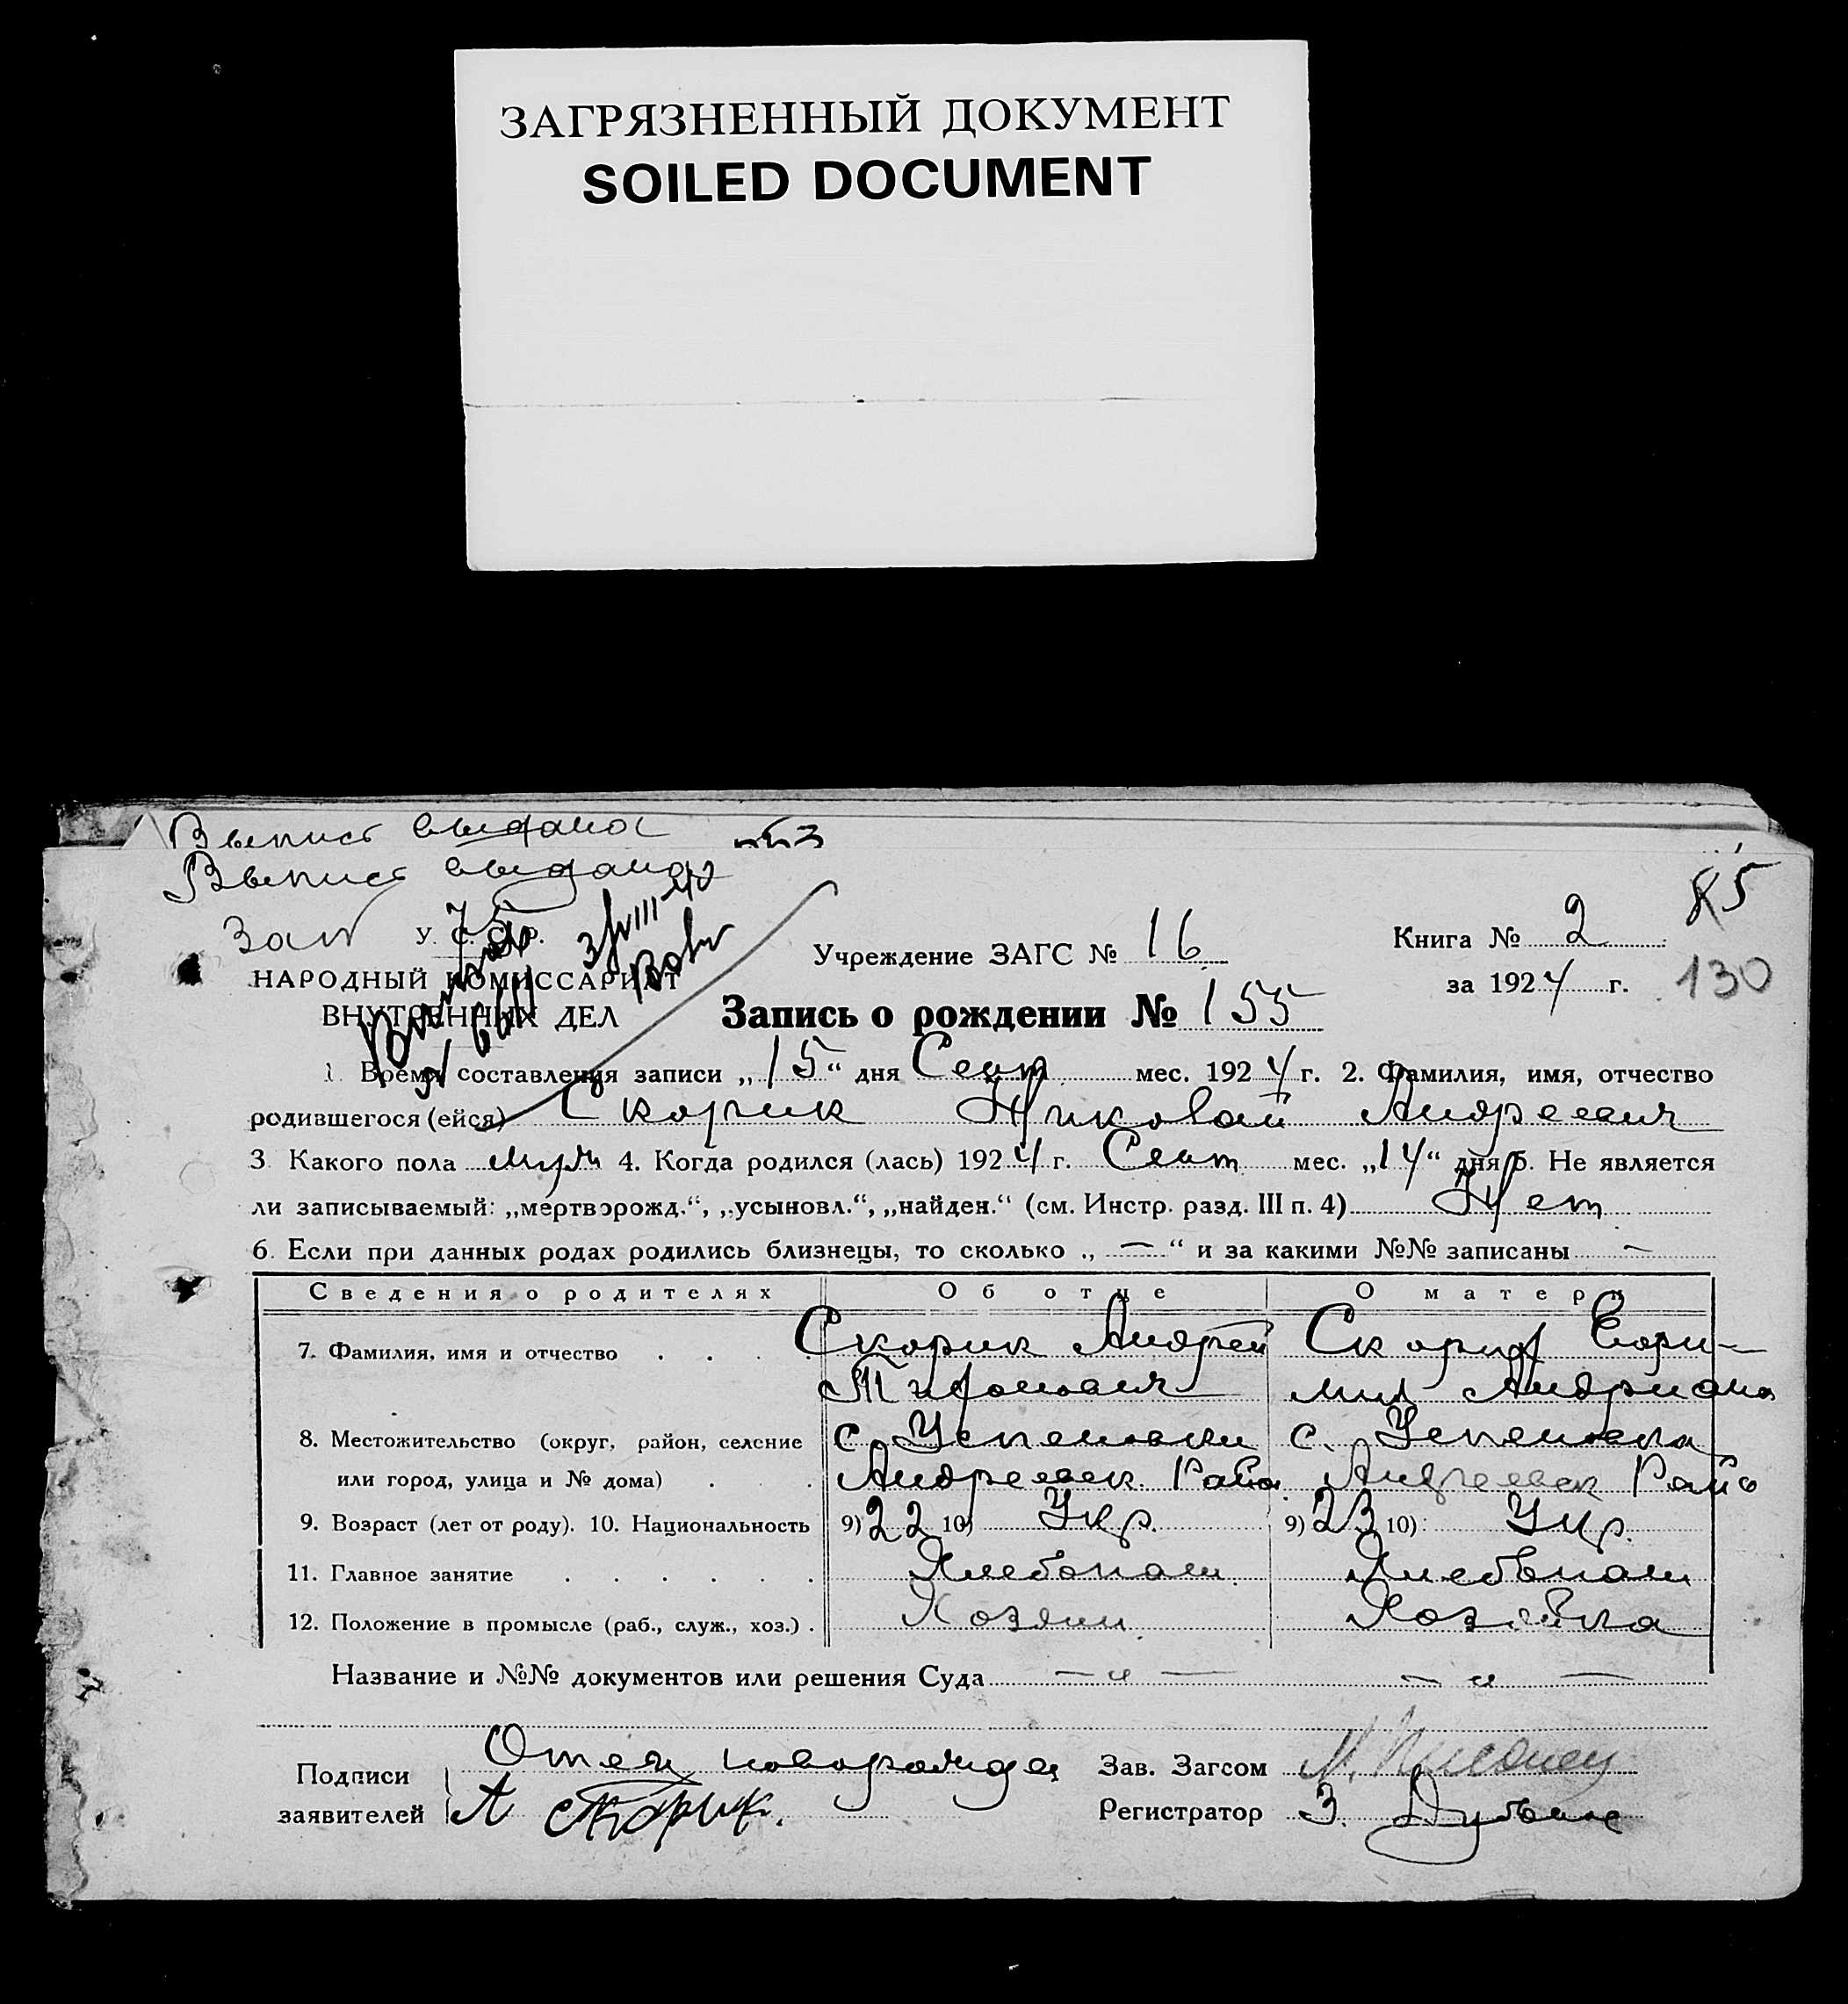 ЗАГРЯЗНЕННЫЙ ДОКУМЕНТ
SOILED DOCUMENT
Выпись выдана
Выпись выдана
85
У. С. С. Р.
Учреждение ЗАГС № 16
Книга № 2
НАРОДНЫЙ КОМИССАРИАТ
за 1924 г.
130
ВНУТРЕННИХ ДЕЛ
Запись о рождении № 155
1. Время составления записи „15“ дня Сент мес. 1924 г. 2. Фамилия, имя, отчество
родившегося (ейся) Скорик Николай Андреевич
3. Какого пола муж 4. Когда родился (лась) 1924 г. Сент мес. „14“ дня 5. Не является
ли записываемый: „мертворожд.“, „усыновл.“, „найден.“ (см. Инстр. разд. III п. 4) Нет
6. Если при данных родах родились близнецы, то сколько „ — “ и за какими №№ записаны —
Сведения о родителях Об отце О матери
7. Фамилия, имя и отчество . . . . Скорик Андрей Скорик
Андриана
8. Местожительство (округ, район, селение с. Успеновки с. Успеновка
или город, улица и № дома) . . Андреевск. Район Андреевск Район
9. Возраст (лет от роду). 10. Национальность 9) 22 10) Укр. 9) 23 10) Укр.
11. Главное занятие . . . . . . Хлебопаш. Хлебопаш
12. Положение в промысле (раб., служ., хоз.) . Хозяин Хозяйка
Название и №№ документов или решения Суда — „ — — „ —
Подписи Отец новорожде Зав. Загсом
заявителей А Скорик. Регистратор З.